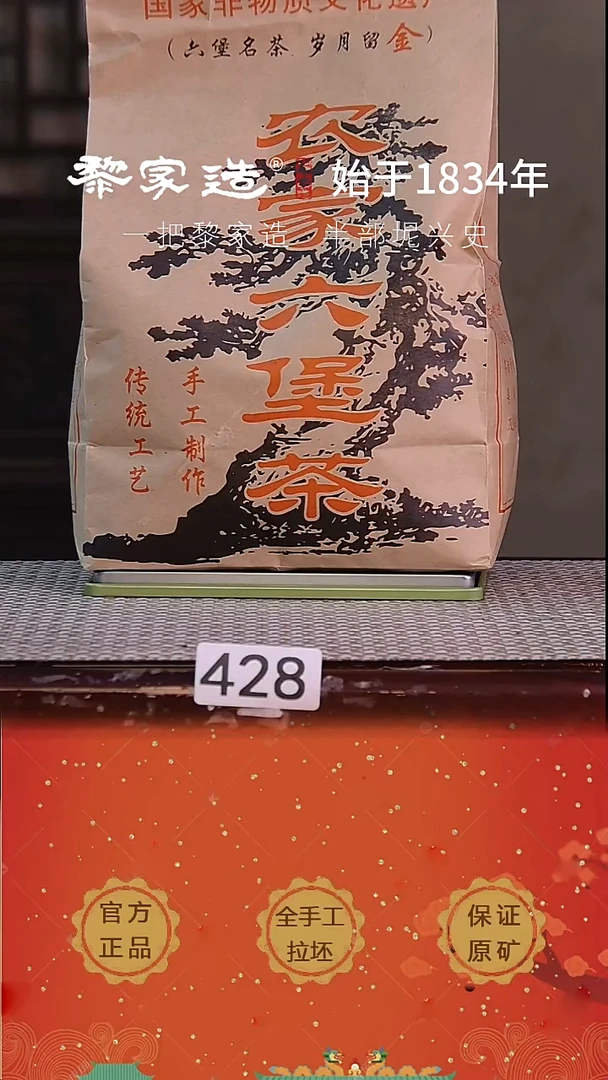 国家非物质文化遗产
（六堡名茶 岁月留金）
农家六堡茶
黎家造® 始于1834年
一把黎家造 半部坭兴史
手工制作
传统工艺
428
官方
正品
全手工
拉坯
保证
原矿